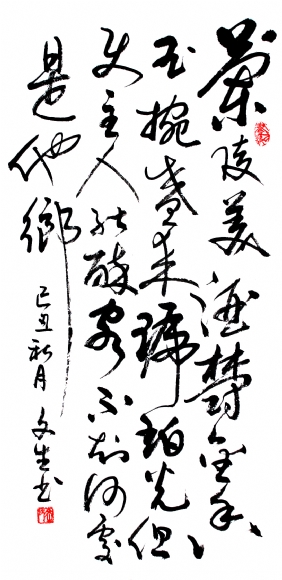 蘭陵美酒鬱金香
玉碗盛来琥珀光但
使主人能醉客不知何處
是他鄉 己丑秋月 文生书